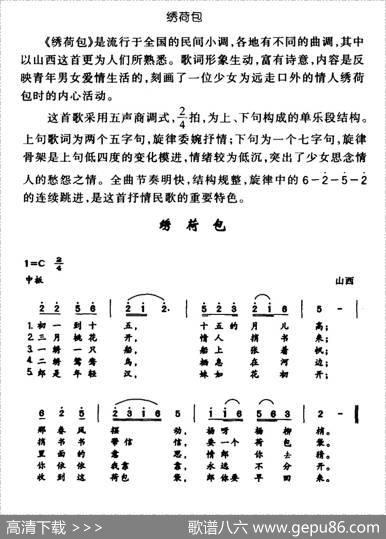 绣荷包
《绣荷包》是流行于全国的民间小调,各地有不同的曲调,其中
以山西这首更为人们所熟悉。歌词形象生动,富有诗意,内容是反
映青年男女爱情生活的,刻画了一位少女为远走口外的情人绣荷
包时的内心活动。
这首歌采用五声商调式,2/4拍,为上、下句构成的单乐段结构。
上句歌词为两个五字句,旋律委婉抒情;下句为一个七字句,旋律
骨架是上句低四度的变化模进,情绪较为低沉,突出了少女思念情
人的愁怨之情。全曲节奏明快,结构规整,旋律中的6-2-5-2
的连续跳进,是这首抒情民歌的重要特色。
绣荷包
1=C 2/4
中板 山西
2 2 5 6 | 2 1 2. | 5 2 2 1 6 | 5 - |
1.初一到十五, 十五的月儿高;
2.三月桃花开, 情人捎书来;
3.一绣一只船, 船上张着帆;
4.二绣鸳鸯鸟, 栖息在河边;
5.郎是年轻汉, 妹如花初开;
6 2 5 | 2 3 1 6 5 |
那春风摆动, 杨呀杨柳梢。
捎书书带信信, 要一个荷包袋。
里面的意思, 情郎你去猜。
你依依我靠靠, 永远不分开。
收到这荷包袋, 郎你要早回来。
高清下载 >>>
歌谱八六 www.gepu86.com